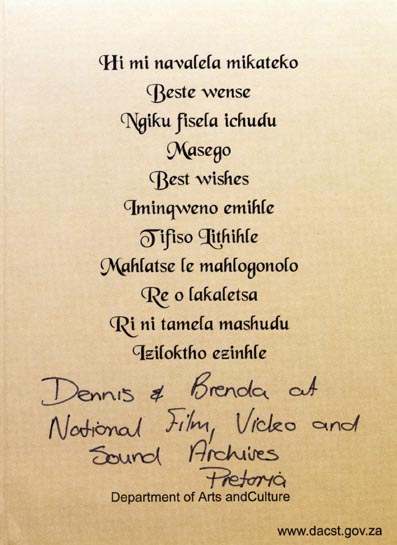 Hi mi navalela mikateko
Beste wense
Ngiku fisela ichudu
Masego
Best wishes
Iminqweno emihle
Tifiso Lithihle
Mahlatse le mahlogonolo
Re o lakaletsa
Ri ni tamela mashudu
Iziloktho ezinhle
Dennis & Brenda at
National Film, Video and
Sound Archives
Pretoria
Department of Arts andCulture
www.dacst.gov.za